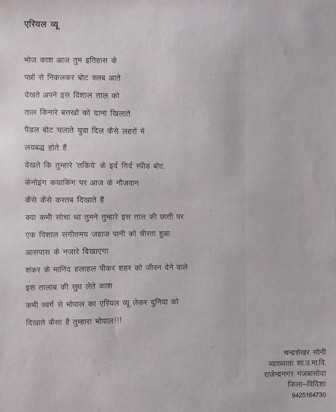 एरियल व्यू
भोज काश आज तुम इतिहास के
पन्नों से निकलकर बोट क्लब आते
देखते अपने इस विशाल ताल को
ताल किनारे बत्तखों को दाना खिलाते
पैडल बोट चलाते युवा दिल कैसे लहरों में
लयबद्ध होते हैं
देखते कि तुम्हारे 'तकिये' के इर्द गिर्द स्पीड बोट,
केनोइंग कयाकिंग पर आज के नौजवान
कैसे कैसे करतब दिखाते हैं
क्या कभी सोचा था तुमने तुम्हारे इस ताल की छाती पर
एक विशाल संगीतमय जहाज पानी को चीरता हुआ
आसपास के नजारे दिखाएगा
शंकर के मानिंद हलाहल पीकर शहर को जीवन देने वाले
इस तालाब की सुध लेते काश
कभी स्वर्ग से भोपाल का एरियल व्यू लेकर दुनिया को
दिखाते कैसा है तुम्हारा भोपाल!!!
चन्द्रशेखर सोनी
व्याख्याता शा.उ.मा.वि.
राजेन्द्रनगर गंजबासोदा
जिला-विदिशा
9425164730